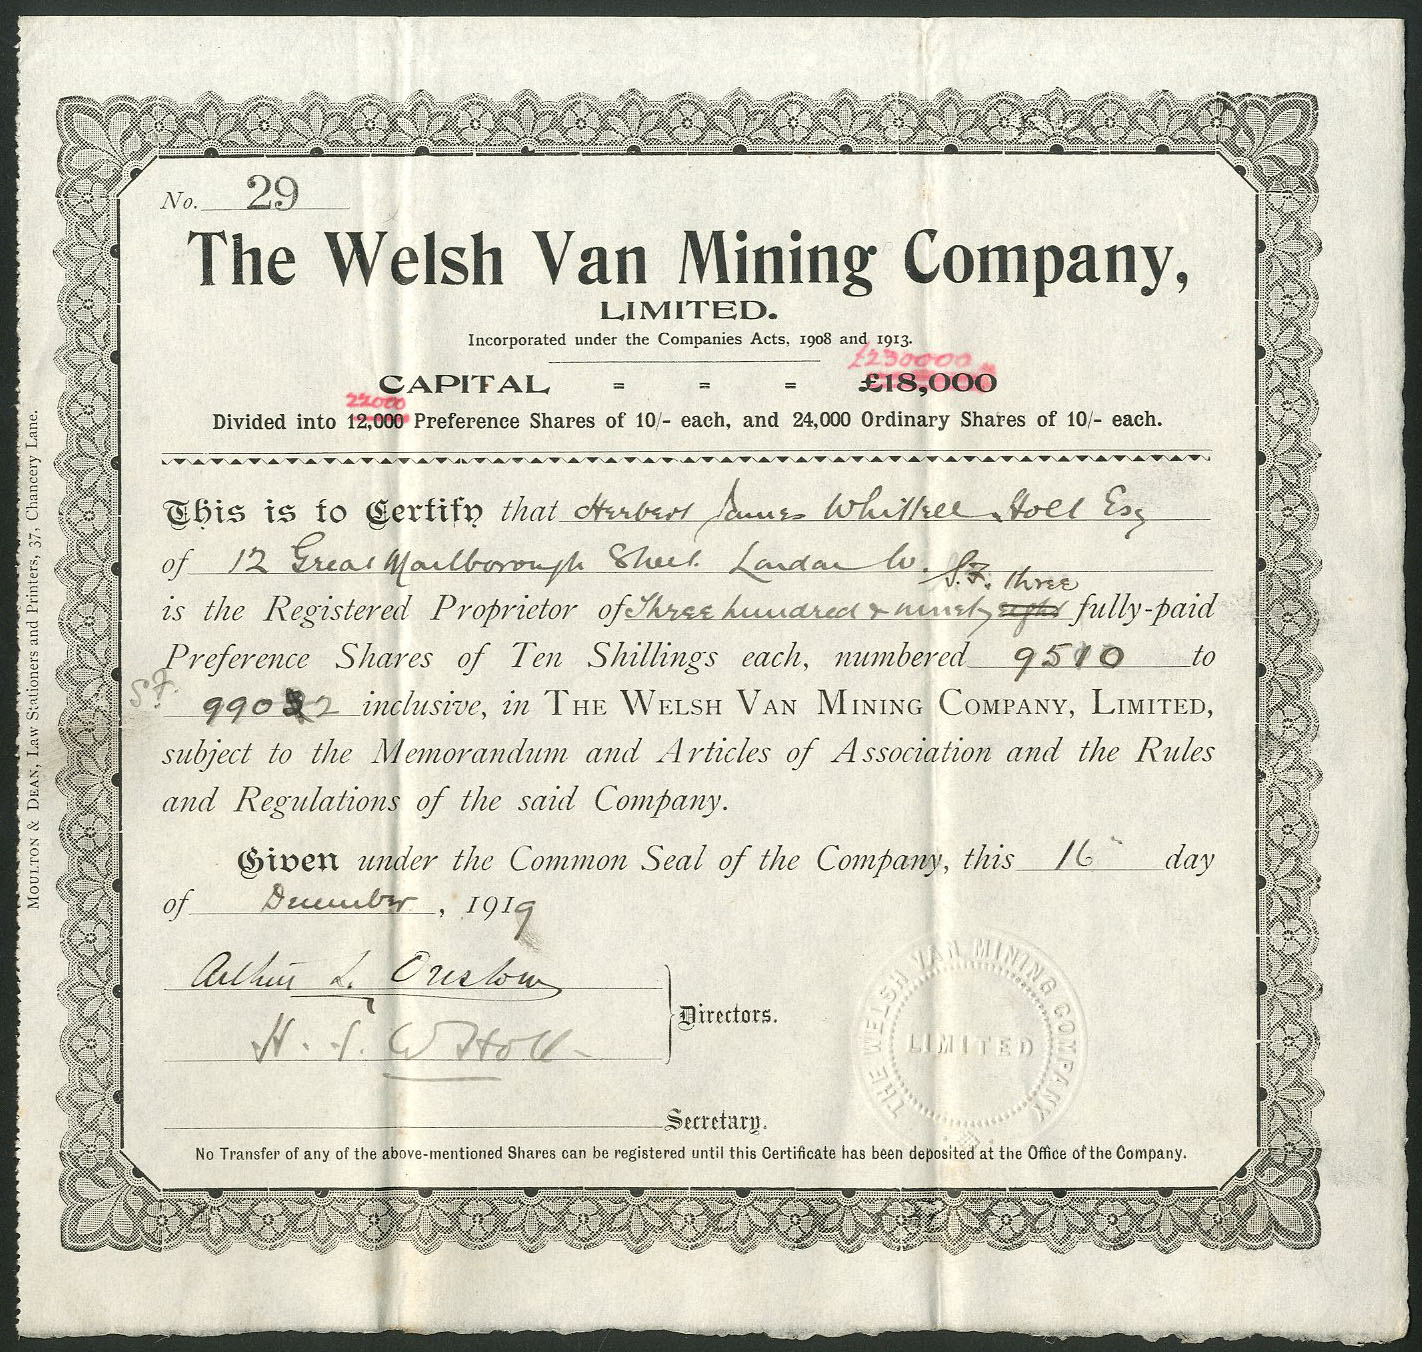 No. 29
The Welsh Van Mining Company,
LIMITED.
Incorporated under the Companies Acts, 1908 and 1913.
£230000
CAPITAL = = = £18,000
22000
Divided into 12,000 Preference Shares of 10/- each, and 24,000 Ordinary Shares of 10/- each.
This is to Certify that Herbert James Whitkell Holl Esq
of 12 Great Marlborough Street London W.
S.F. three
is the Registered Proprietor of Three hundred & ninety eight fully-paid
Preference Shares of Ten Shillings each, numbered 9510 to
S.F. 9902 inclusive, in THE WELSH VAN MINING COMPANY, LIMITED,
subject to the Memorandum and Articles of Association and the Rules
and Regulations of the said Company.
Given under the Common Seal of the Company, this 16 day
of December, 1919
Arthur L. Onslow
H. J. W Holl
Directors.
Secretary.
No Transfer of any of the above-mentioned Shares can be registered until this Certificate has been deposited at the Office of the Company.
THE WELSH VAN MINING COMPANY
LIMITED
MOULTON & DEAN, Law Stationers and Printers, 37, Chancery Lane.